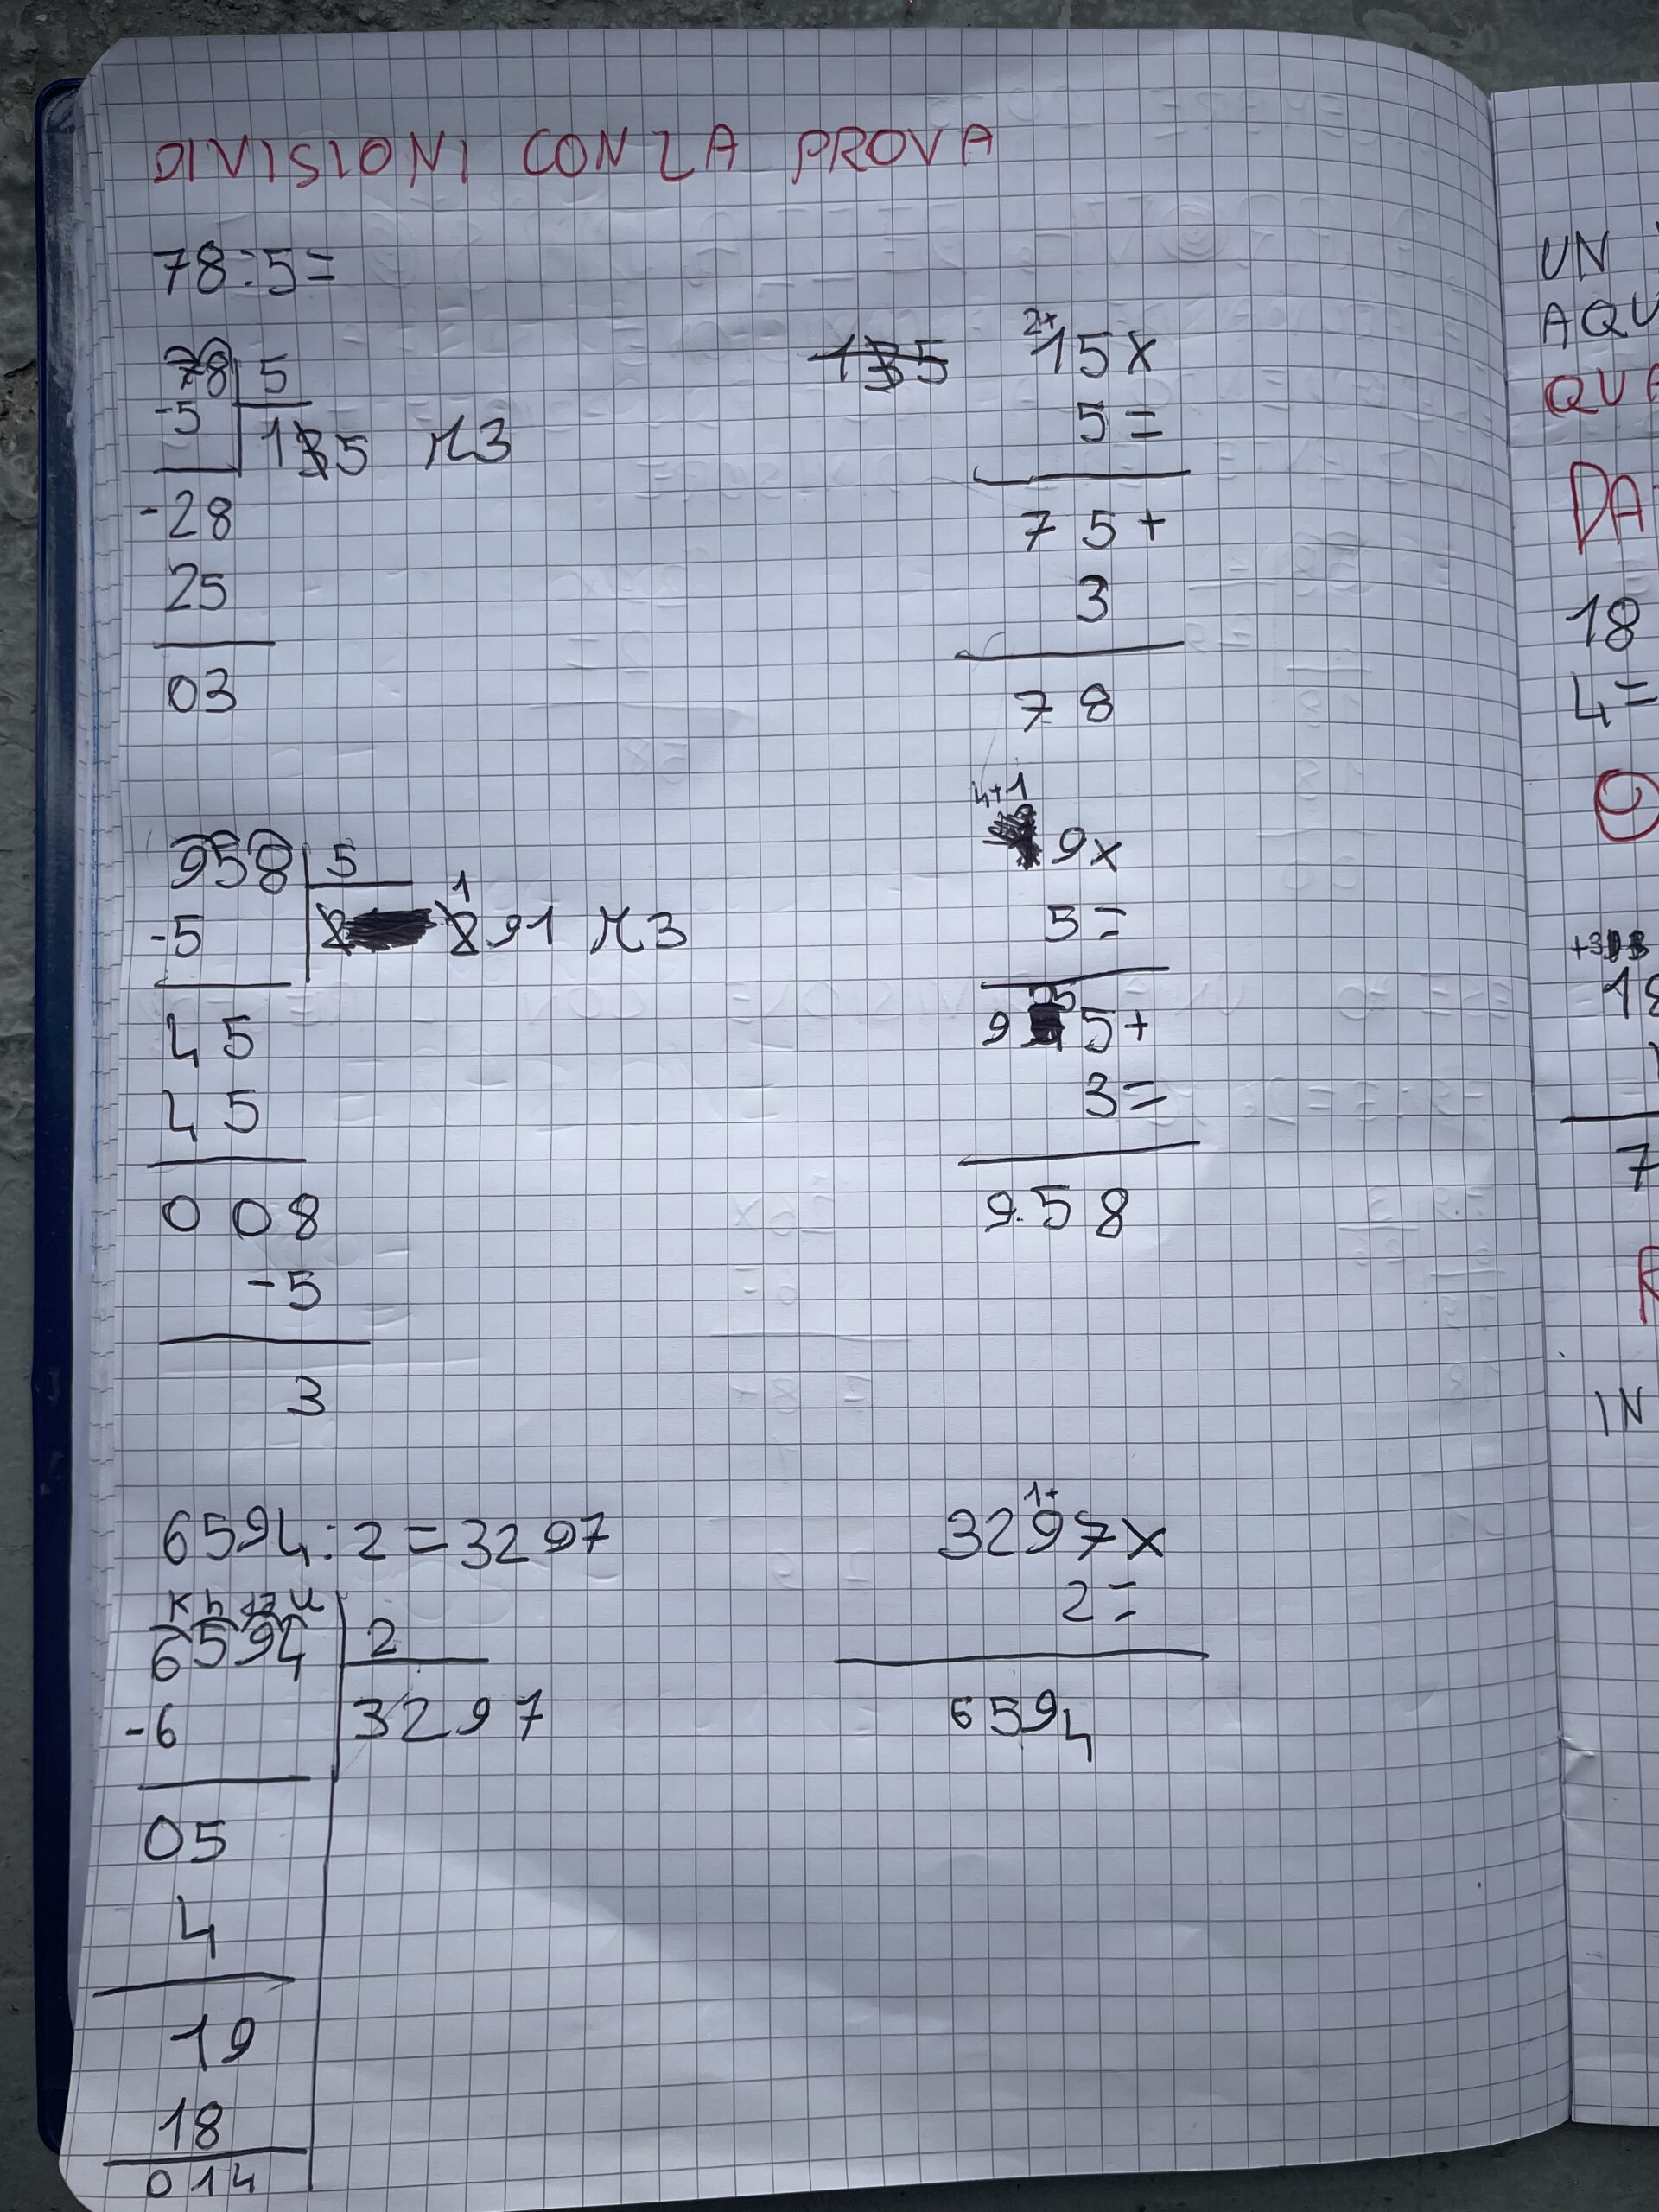 DIVISIONI CON LA PROVA
78:5=
78 5
-5
15 r3
-28
25
03
135
2+
15x
5=
75+
3
78
958 5
-5
1
91 r3
45
45
008
-5
3
4+1
9x
5=
9 5 5+
3=
958
6594:2=3297
K h da u
6594 2
-6 3297
05
4
19
18
014
1+
3297x
2=
6594
UN
AQU
QUA
DA
18
4=
18
7
R
IN